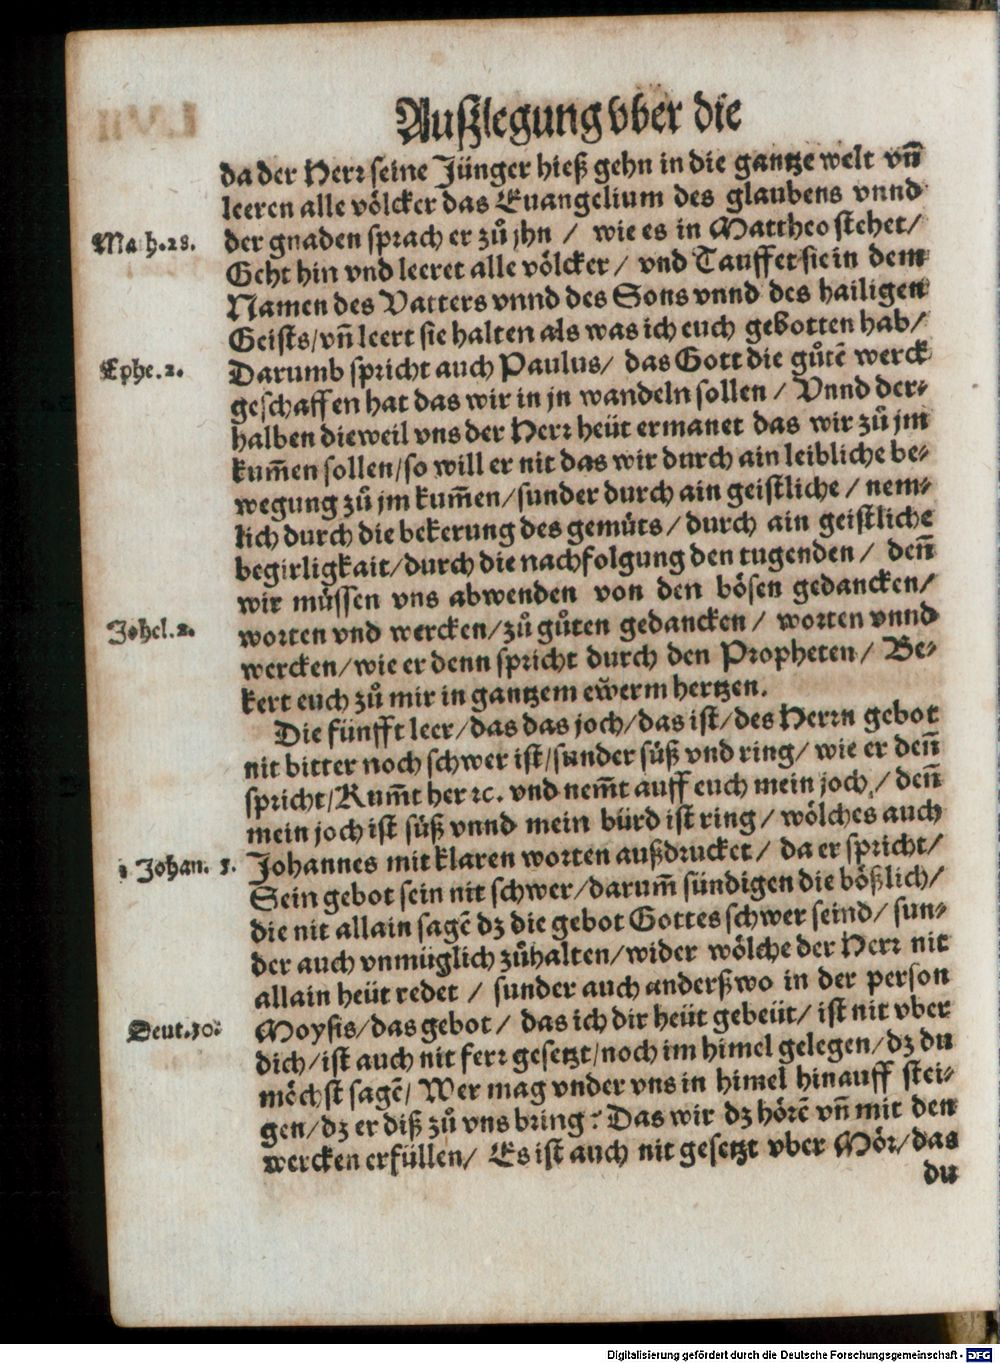 Außlegung vber die
da der Herr seine Jünger hieß gehn in die gantze welt vñ
leeren alle völcker das Euangelium des glaubens vnnd
Math.28.
der gnaden sprach er zů jhn / wie es in Mattheo stehet/
Geht hin vnd leeret alle völcker/ vnd Tauffet sie in dem
Namen des Vatters vnnd des Sons vnnd des hailigen
Geists/vñ leert sie halten als was ich euch gebotten hab/
Ephe.2.
Darumb spricht auch Paulus/ das Gott die gůtē werck
geschaffen hat das wir in jn wandeln sollen / Vnnd der-
halben dieweil vns der Herr heüt ermanet das wir zů jm
kum̃en sollen/so will er nit das wir durch ain leibliche be-
wegung zů jm kum̃en/sunder durch ain geistliche / nem-
lich durch die bekerung des gemüts/durch ain geistliche
begirligkait/durch die nachfolgung den tugenden / deñ
wir müssen vns abwenden von den bösen gedancken/
Johel.2.
worten vnd wercken/zů gůten gedancken / worten vnnd
wercken/wie er denn spricht durch den Propheten/ Be-
kert euch zů mir in gantzem ewerm hertzen.
Die fünfft leer/das das joch/das ist/des Herrn gebot
nit bitter noch schwer ist/sunder süß vnd ring/ wie er deñ
spricht/Kum̃t her ꝛc. vnd nem̃t auff euch mein joch,/ deñ
mein joch ist süß vnnd mein bürd ist ring/ wölches auch
1 Johan. 5.
Johannes mit klaren worten außdrucket/ da er spricht/
Sein gebot sein nit schwer/darum̃ sündigen die bößlich/
die nit allain sagē dz die gebot Gottes schwer seind/ sun-
der auch vnmüglich zůhalten/wider wölche der Herr nit
allain heüt redet / sunder auch anderßwo in der person
Deut.30.
Moysis/das gebot/ das ich dir heüt gebeüt/ ist nit vber
dich/ist auch nit ferr gesetzt/noch im himel gelegen/dz du
möchst sagē/ Wer mag vnder vns in himel hinauff stei-
gen/dz er diß zů vns bring? Das wir dz hörē vñ mit den
wercken erfüllen/ Es ist auch nit gesetzt vber Mör/das
du
Digitalisierung gefördert durch die Deutsche Forschungsgemeinschaft - DFG